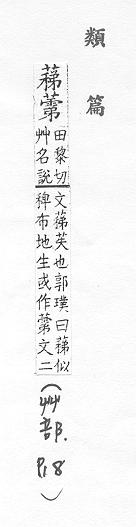 類篇
蕛䔣
田黎切
艸名說
文蕛苵也郭璞曰蕛似
稗布地生或作䔣文二
(艸部. P.18)